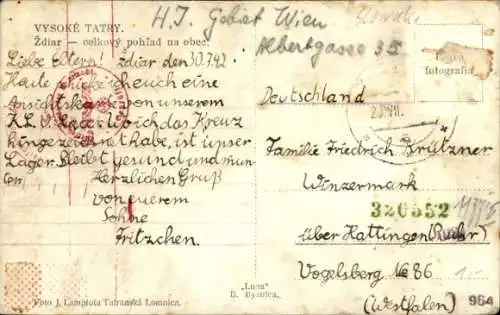 VYSOKÉ TATRY.
Ždiar — celkový pohľad na obec.
H.J. Gebiet Wien
Albertgasse 35
fotografia
Liebe Eltern! Ždiar den 30.7.42
Heute schicke ich euch eine
Ansichtskarte von unserem
K.L.V. Lager. Wo ich das Kreuz
hingezeichnet habe, ist unser
Lager. Bleibt gesund und mun-
ter. Herzlichen Gruß
von euerem
Sohne
Fritzchen
Deutschland
Familie Friedrich Brützner
Winzermark
326552
über Hattingen (Ruhr)
Vogelsberg № 86
(Westfalen)
964
Foto J. Lamplota Tatranská Lomnica.
„Luna"
B. Bystrica.